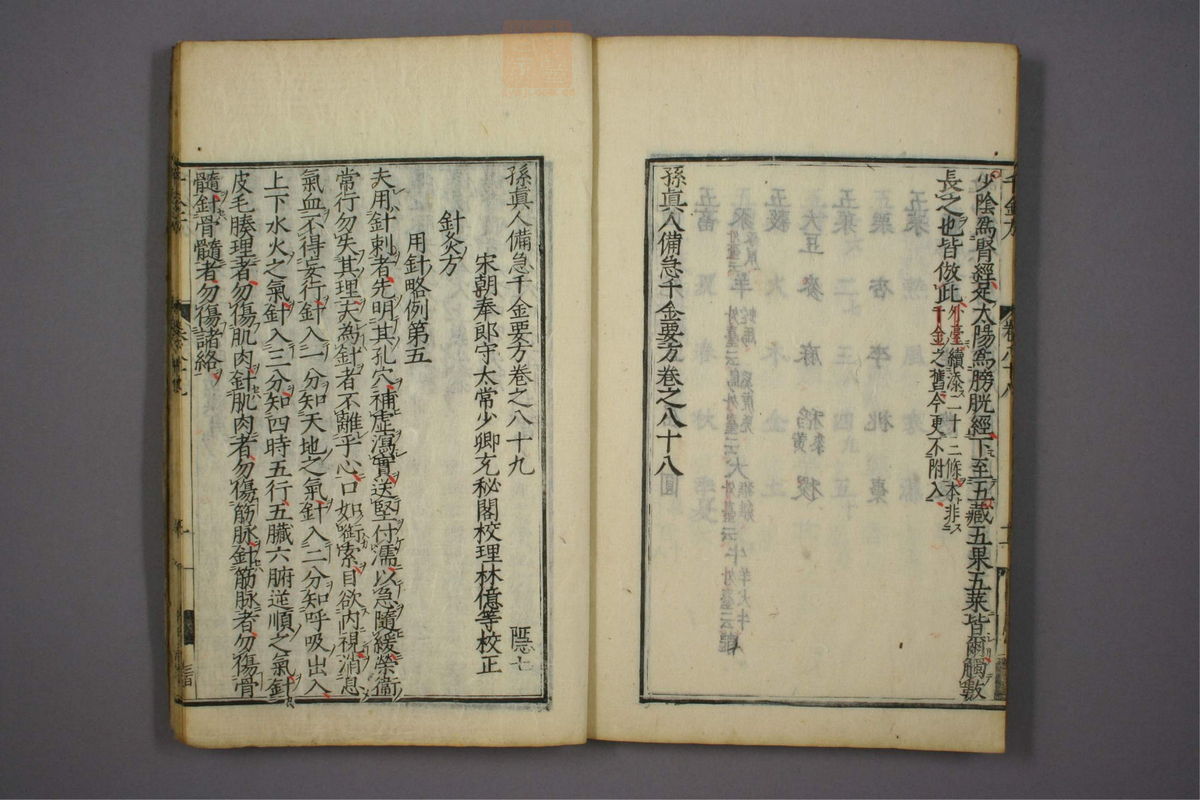 少陰爲腎經足太陽爲膀胱經下至五藏五果五菜皆爾觸數
長之也皆倣此外臺續添二十三條本非
千金之舊今更不附入
孫眞人備急千金要方卷之八十八
孫眞人備急千金要方卷之八十九
宋朝奉郎守太常少卿充秘閣校理林億等校正
針灸方
用針略例第五
夫用針刺者先明其孔穴補虛瀉實送堅付濡以急隨緩榮衞
常行勿失其理夫為針者不離乎心口如銜索目欲内視消息
氣血不得妄行針入一分知天地之氣針入二分知呼吸出入
上下水火之氣針入三分知四時五行五臟六腑逆順之氣針
皮毛腠理者勿傷肌肉針肌肉者勿傷筋脉針筋脉者勿傷骨
髓針骨髓者勿傷諸絡